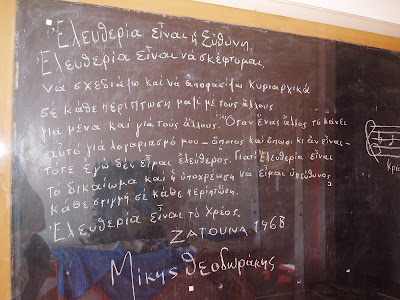 Ἐλευθερία εἶναι ἡ Εὐθύνη.
Ἐλευθερία εἶναι νά σκέφτομαι,
νά σχεδιάζω καί νά ἀποφασίζω κυριαρχικά
σέ κάθε περίπτωση μαζί μέ τούς ἄλλους
γιά μένα καί γιά τούς ἄλλους. Ὅταν ἕνας ἄλλος τό κάνει
αὐτό γιά λογαριασμό μου – ὅποιος καί ὅπως κι ἄν εἶναι –
τότε ἐγώ δέν εἶμαι ἐλεύθερος. Γιατί Ἐλευθερία εἶναι
τό δικαίωμα καί ἡ ὑποχρέωση νά εἶμαι ὑπεύθυνος
κάθε στιγμή σέ κάθε περίπτωση.
Ἐλευθερία εἶναι τό Χρέος.
ΖΑΤΟΥΝΑ 1968
Μίκης Θεοδωράκης